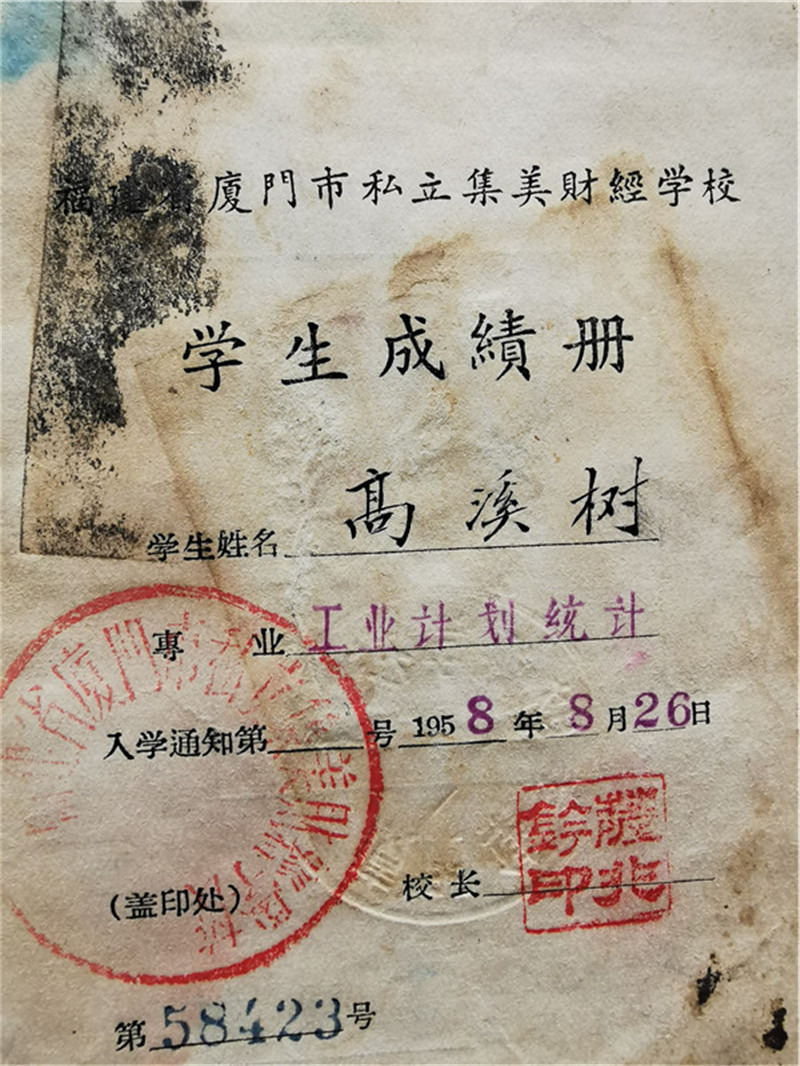 福建省廈門市私立集美財經学校
学生成績册
学生姓名 髙溪树
專业 工业计划统计
入学通知第 号 1958年8月26日
(盖印处)
校长
第58423号